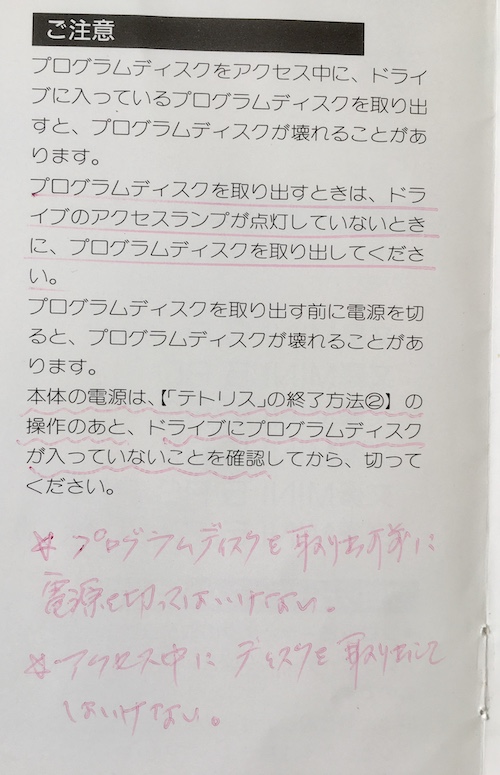 ご注意
プログラムディスクをアクセス中に、ドライ
ブに入っているプログラムディスクを取り出
すと、プログラムディスクが壊れることがあ
ります。
プログラムディスクを取り出すときは、ドラ
イブのアクセスランプが点灯していないとき
に、プログラムディスクを取り出してくださ
い。
プログラムディスクを取り出す前に電源を切
ると、プログラムディスクが壊れることがあ
ります。
本体の電源は、【「テトリス」の終了方法②】の
操作のあと、ドライブにプログラムディスク
が入っていないことを確認してから、切って
ください。
* プログラムディスクを取り出す前に
電源を切ってはいけない。
* アクセス中にディスクを取り出して
はいけない。